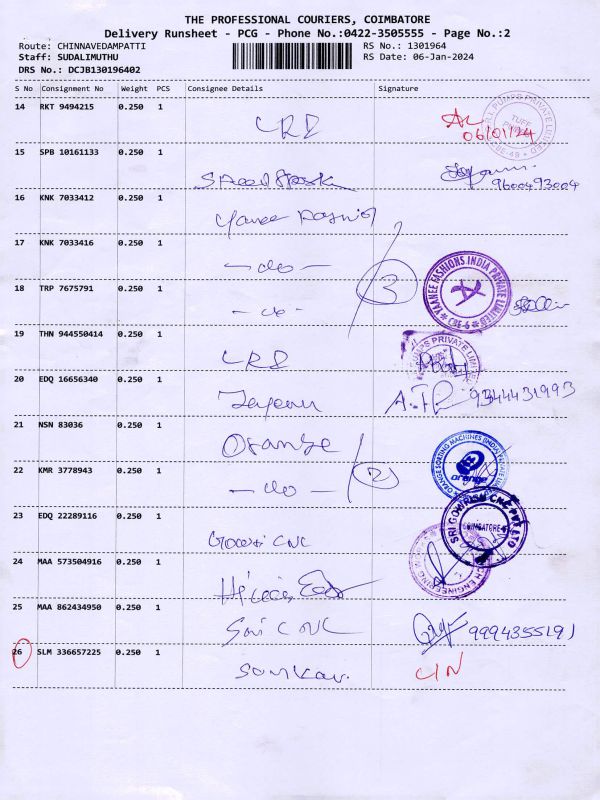 THE PROFESSIONAL COURIERS, COIMBATORE
Delivery Runsheet - PCG - Phone No.:0422-3505555 - Page No.:2
Route: CHINNAVEDAMPATTI RS No.: 1301964
Staff: SUDALIMUTHU RS Date: 06-Jan-2024
DRS No.: DCJB130196402
S No Consignment No Weight PCS Consignee Details Signature
14 RKT 9494215 0.250 1
CRI
06/01/24
15 SPB 10161133 0.250 1
9600493004
16 KNK 7033412 0.250 1
Yanee
17 KNK 7033416 0.250 1
- do -
3
YAANEE FASHIONS INDIA PRIVATE LIMITED
CBE-6
18 TRP 7675791 0.250 1
- do -
19 THN 944550414 0.250 1
CRI
PUMPS PRIVATE LIMITED
20 EDQ 16656340 0.250 1
9344431993
21 NSN 83036 0.250 1
Orange
ORANGE SORTING MACHINES (INDIA) PRIVATE
orange
22 KMR 3778943 0.250 1
- do -
2
23 EDQ 22289116 0.250 1
Gowri CNC
SRI GOWRISH CNC PVT LTD
COIMBATORE-6
24 MAA 573504916 0.250 1
ENGINEERING
25 MAA 862434950 0.250 1
Sri CNC
9994355191
26 SLM 336657225 0.250 1
CIN